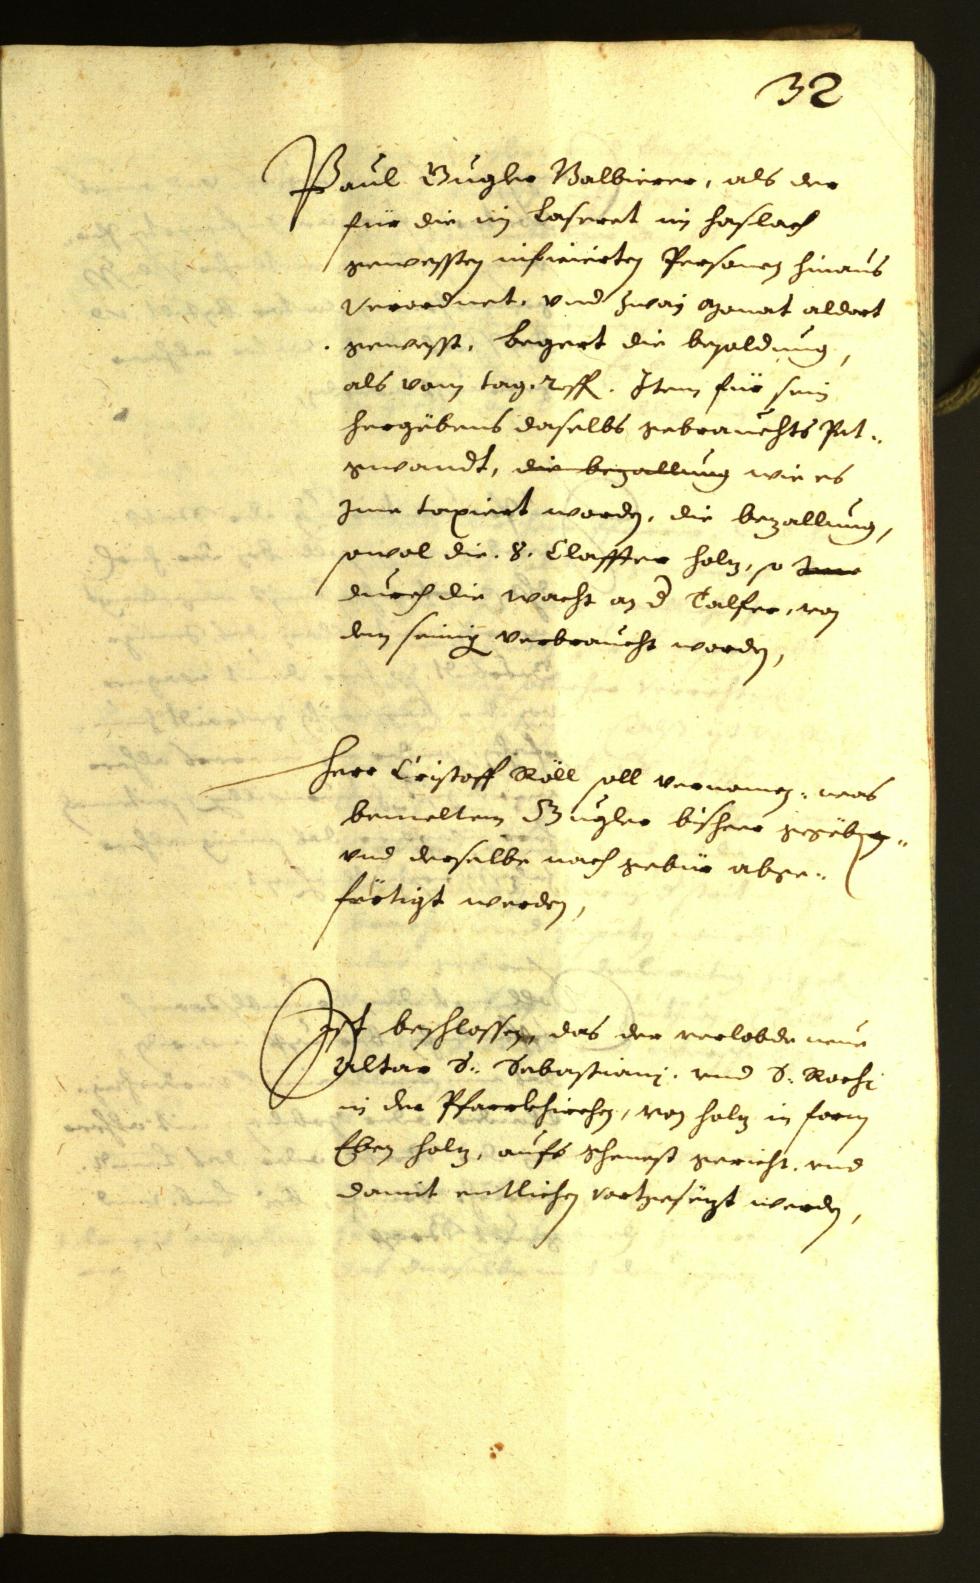 32
Paul Gugler Balbierer, als der
für die im Laseret im Haslach
gewessten inficierten Personen hinaus
verordnet, vnd zway Monat aldort
gewesst, begert die besoldung,
als vom tag. 2 fl. Item für sein
hergebens daselbs gebrauchts Pet„
gwandt, die bezallung wie es
Ime taxiert worden, die bezallung,
sowol die. 8. Claffter holz, so Ime
durch die wacht an d Talfer, von
dem seinig verbraucht worden,
Herr Cristoff Röll soll vernomen, was
bemeltem Gugler bisheer gegeben„
vnd derselbe nach gebür abge„
fertigt werden,
Ist beschlossen, das der verlobde neue
Altar S: Sebastiani, vnd S: Rochi
in der Pfarrkhirchen, von holz in form
Eben holz, aufs schenest gericht, vnd
damit entlichen vortgesezt werden,